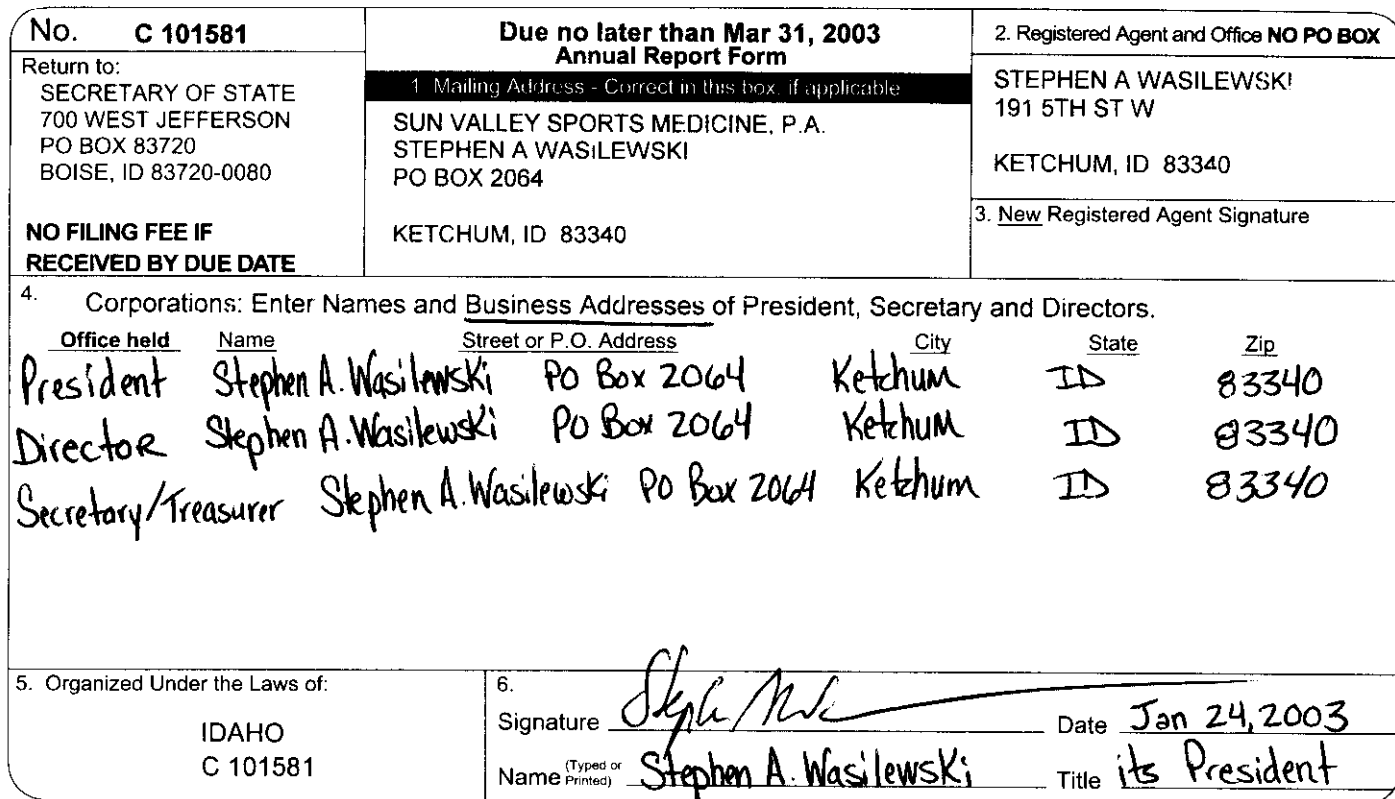 No. C 101581
Return to:
SECRETARY OF STATE
700 WEST JEFFERSON
PO BOX 83720
BOISE, ID 83720-0080
NO FILING FEE IF
RECEIVED BY DUE DATE
Due no later than Mar 31, 2003
Annual Report Form
1 Mailing Address - Correct in this box, if applicable
SUN VALLEY SPORTS MEDICINE, P.A.
STEPHEN A WASILEWSKI
PO BOX 2064
KETCHUM, ID 83340
2. Registered Agent and Office NO PO BOX
STEPHEN A WASILEWSKI
191 5TH ST W
KETCHUM, ID 83340
3. New Registered Agent Signature
4. Corporations: Enter Names and Business Addresses of President, Secretary and Directors.
Office held Name Street or P.O. Address City State Zip
President Stephen A. Wasilewski PO Box 2064 Ketchum ID 83340
Director Stephen A. Wasilewski PO Box 2064 Ketchum ID 83340
Secretary/Treasurer Stephen A. Wasilewski PO Box 2064 Ketchum ID 83340
5. Organized Under the Laws of:
IDAHO
C 101581
6.
Signature Date Jan 24, 2003
Name (Typed or Printed) Stephen A. Wasilewski Title its President